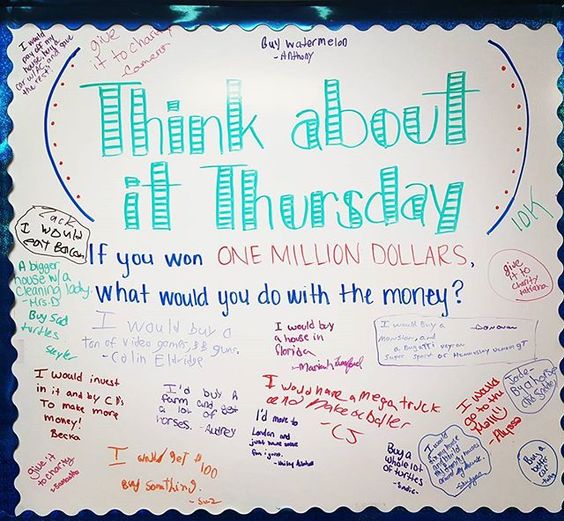 I would
pay off my
house, buy a
car w/AC and give
the rest!
give
it to charity
-Cameron
Buy watermelon
-Anthony
Think about
it Thursday
10K
Zack
I would
eat Bacon
If you won ONE MILLION DOLLARS,
what would you do with the money?
give
it to
charity
A bigger
house w/a
cleaning lady.
-Mrs. D
Buy sad
turtles
Skyler
I would buy a
ton of video games, && guns.
-Colin Eldridge
I would buy
a house in
florida
I would Buy a
Mansion, and
a Bugatti veyron
super sport or Hennessey venom GT
I would invest
in it and by CD's
To make more
money!
Becka
I'd buy A
farm and get
a lot of
horses. -Audrey
I would have a mega truck
and make or baller
-CJ
I'd move to
London and
just
I would
go to the
Mall!!
Alyssa
Jade-
Buy horses
and
Buy a
whole lot
of
turtles
Buy a
better
car
give it
to charity
-Samantha
I would get $100
Buy something.